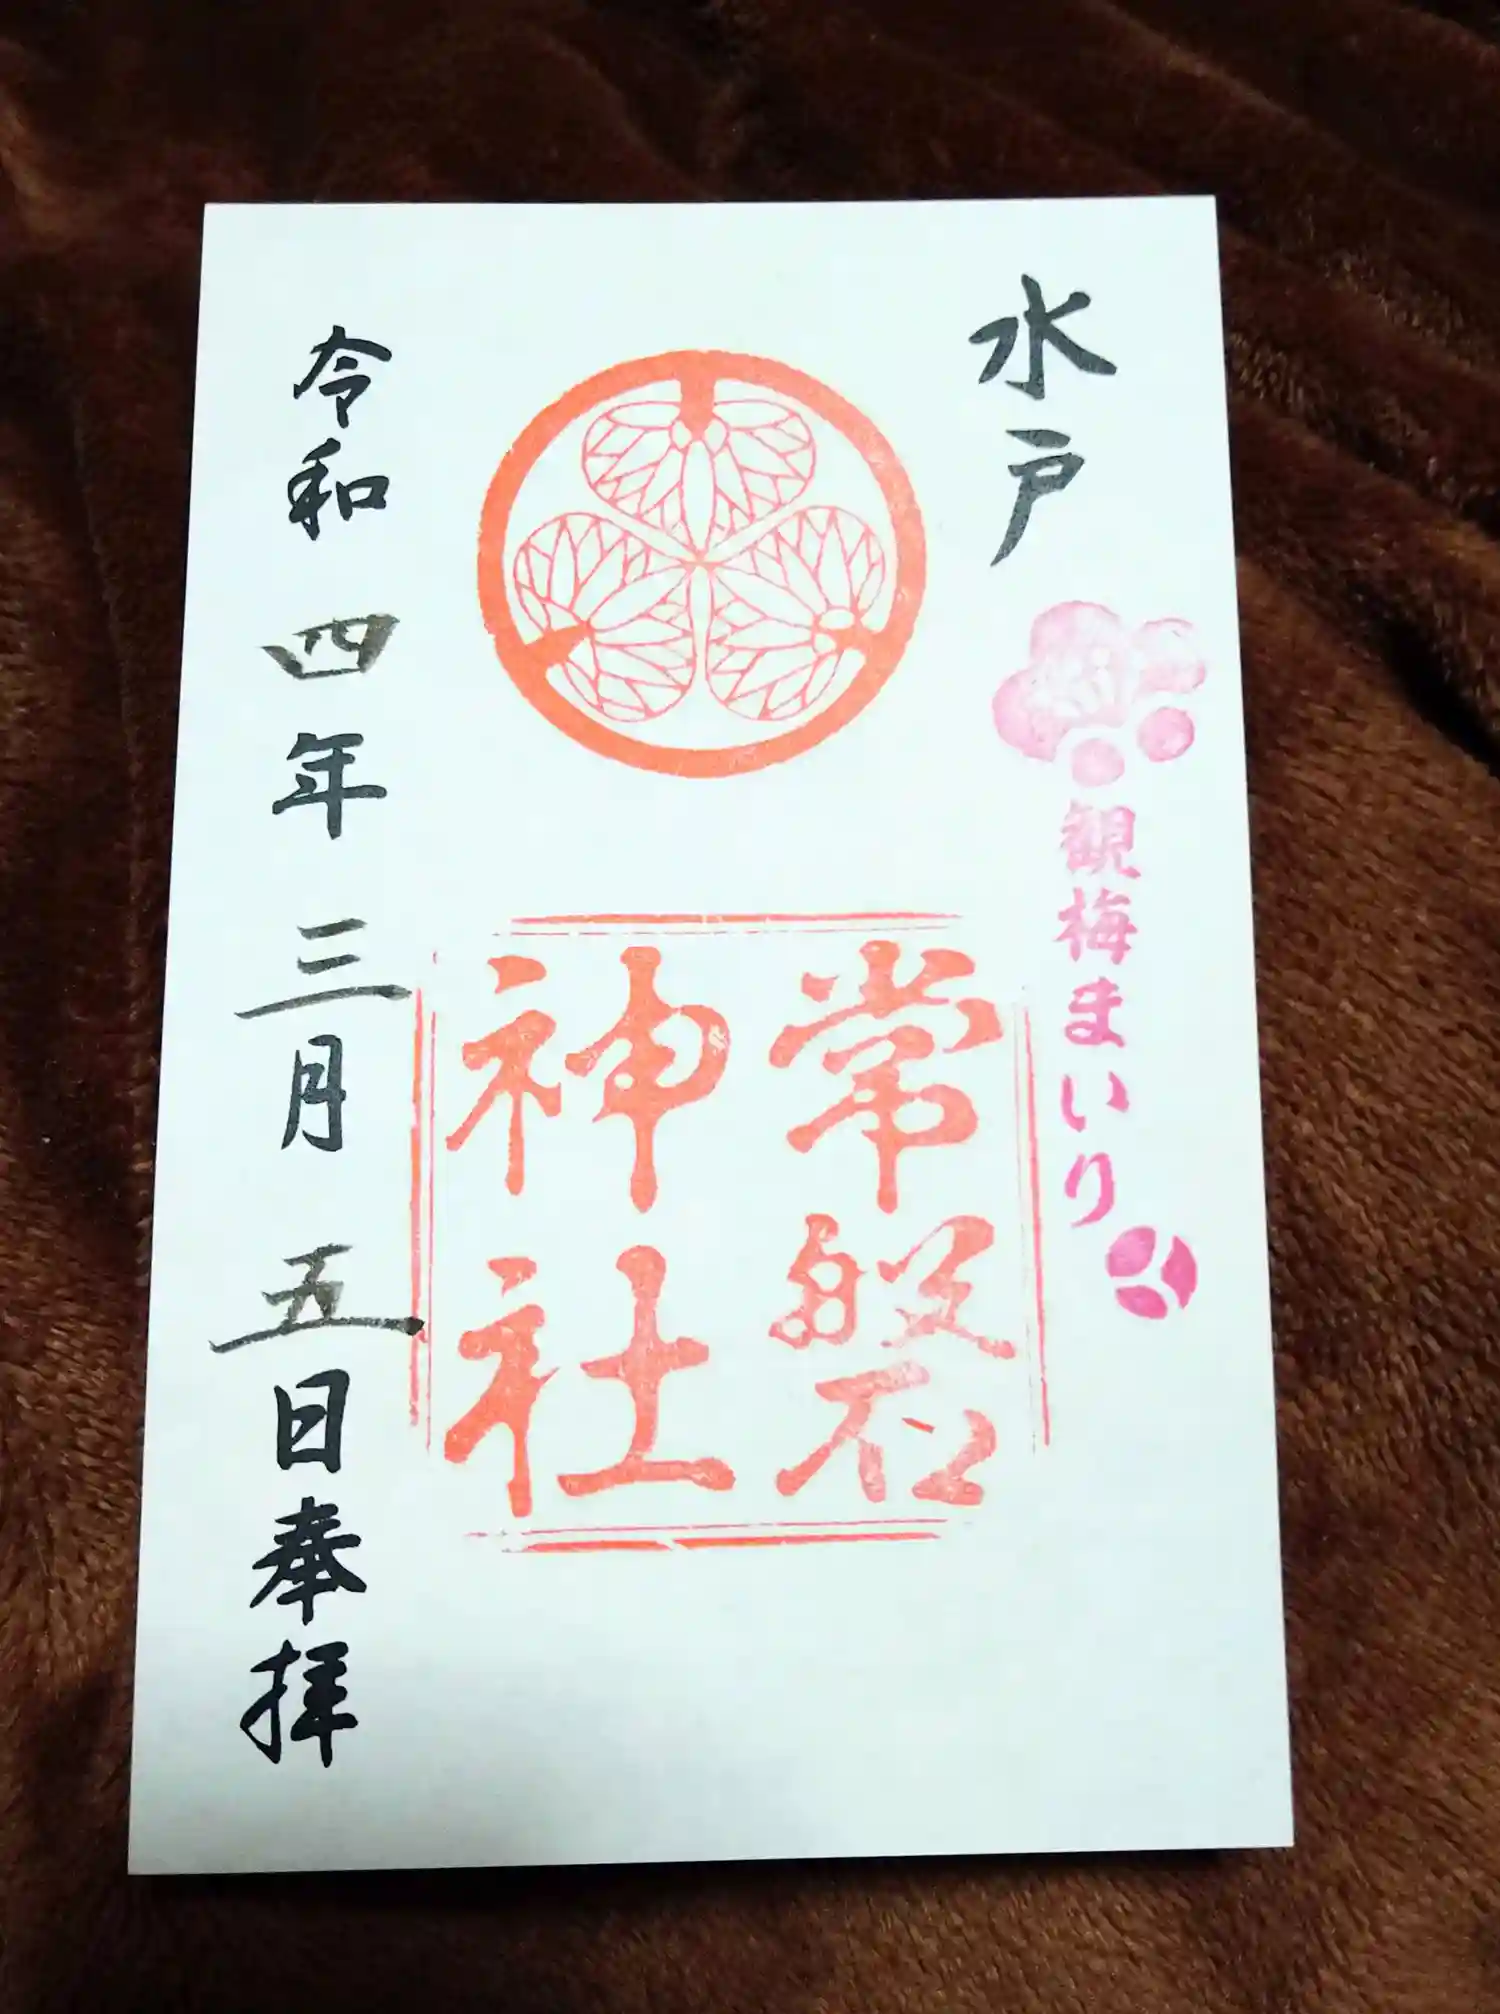 水戸
観梅まいり
常磐
神社
令和四年三月五日奉拝